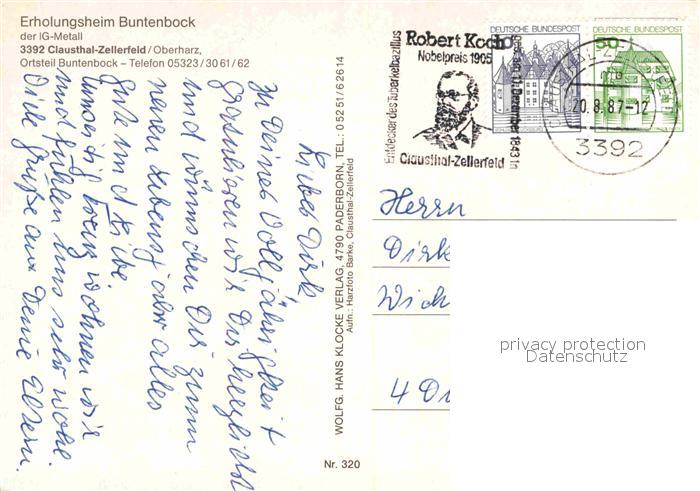 Erholungsheim Buntenbock
der IG-Metall
3392 Clausthal-Zellerfeld/Oberharz,
Ortsteil Buntenbock – Telefon 05323/3061/62
Lieber Dirk
zu Deiner Volljährigkeit
gratulieren wir Dir herzlichst
und wünschen Dir zum
neuen Lebensjahr alles
Gute und Liebe
wohnen wir
und fühlen uns sehr wohl.
Viele Grüße aus Deine Eltern.
WOLFG. HANS KLOCKE VERLAG, 4790 PADERBORN, TEL.: 05251/62614
Aufn.: Harzfoto Barke, Clausthal-Zellerfeld
Nr. 320
Robert Koch
Nobelpreis 1905
Entdecker des Tuberkelbazillus
geb. am 11. Dezember 1843 in
Clausthal-Zellerfeld
DEUTSCHE BUNDESPOST
DEUTSCHE BUNDESPOST
50
20.8.87-12
3392
Herrn
Dirk
Wich
4 Dü
privacy protection
Datenschutz